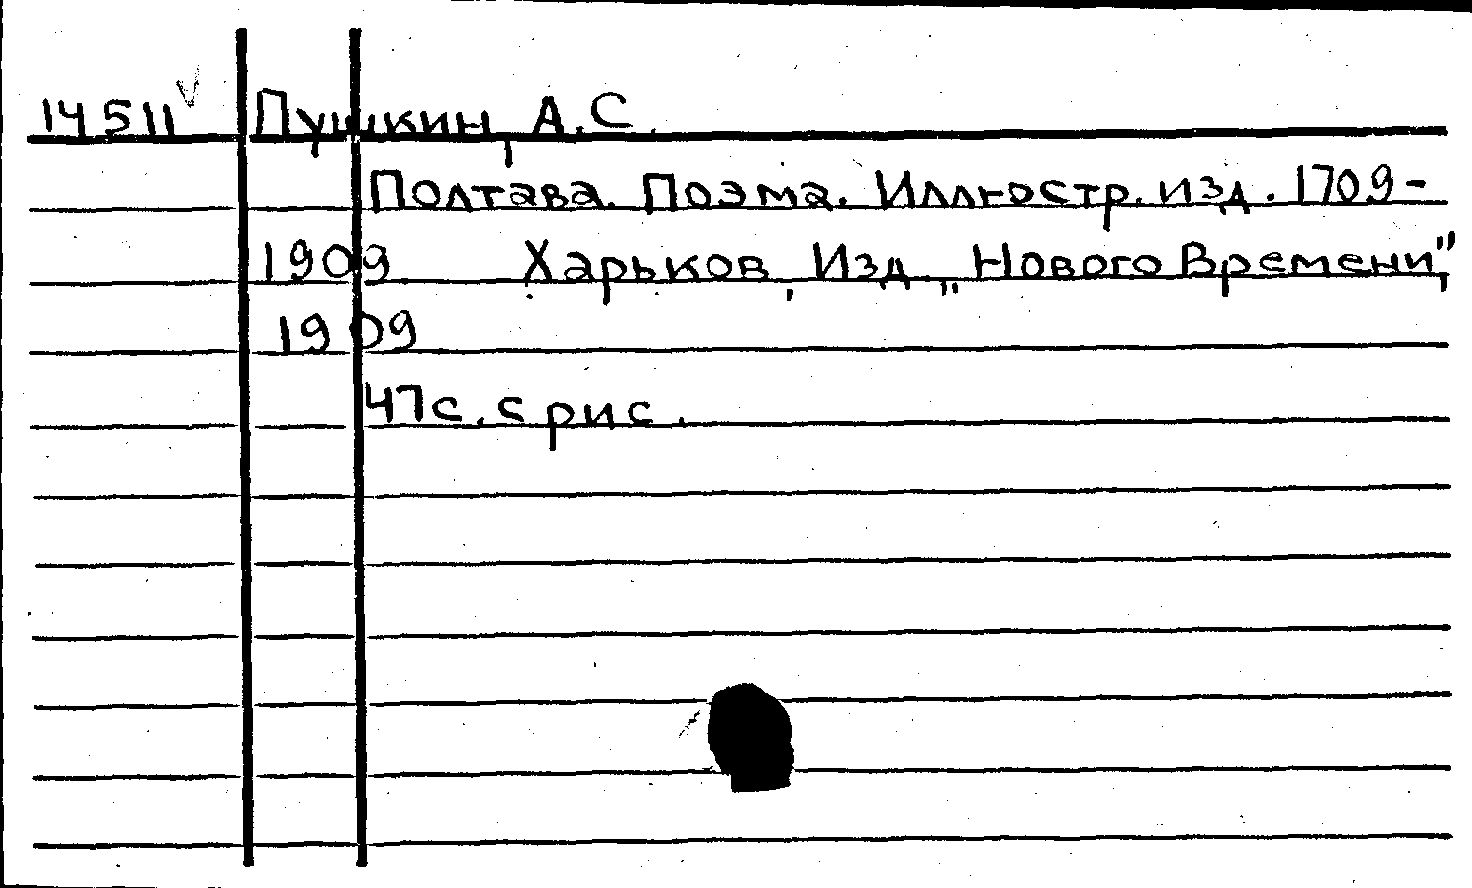 14511 Пушкин, А.С.
Полтава. Поэма. Иллюстр. изд. 1709-
1909 Харьков, Изд. „Нового Времени",
1909
47с. с рис.